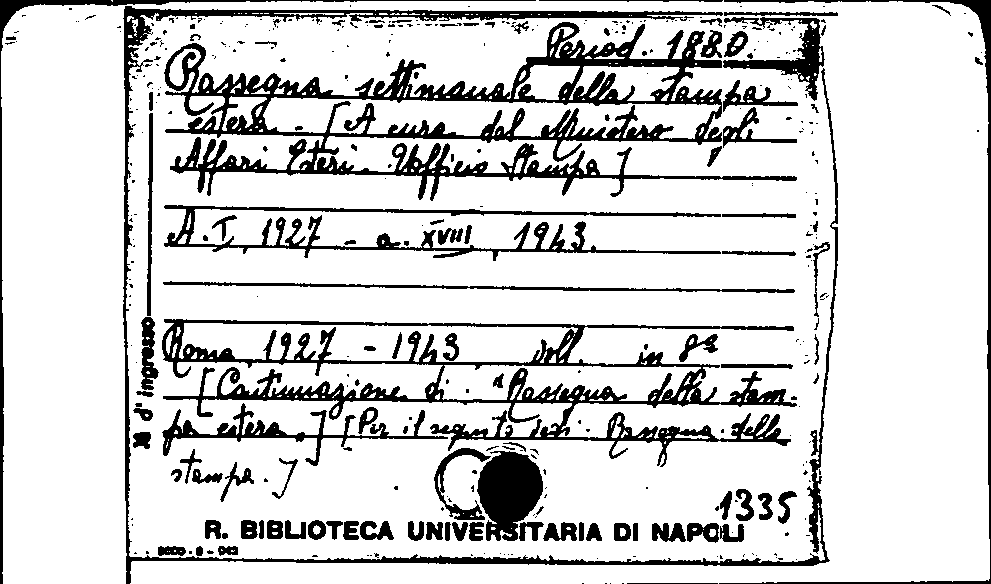 Period. 1880.
Rassegna settimanale della stampa
estera. - [A cura del Ministero degli
Affari Esteri - Ufficio Stampa]
A. I, 1927 - a. XVIII, 1943.
Roma, 1927 - 1943 voll. in 8º
[Continuazione di: "Rassegna della stam-
pa estera."] [Per il seguito vedi: Rassegna della
stampa.]
1335
R. BIBLIOTECA UNIVERSITARIA DI NAPOLI
№ d'ingresso